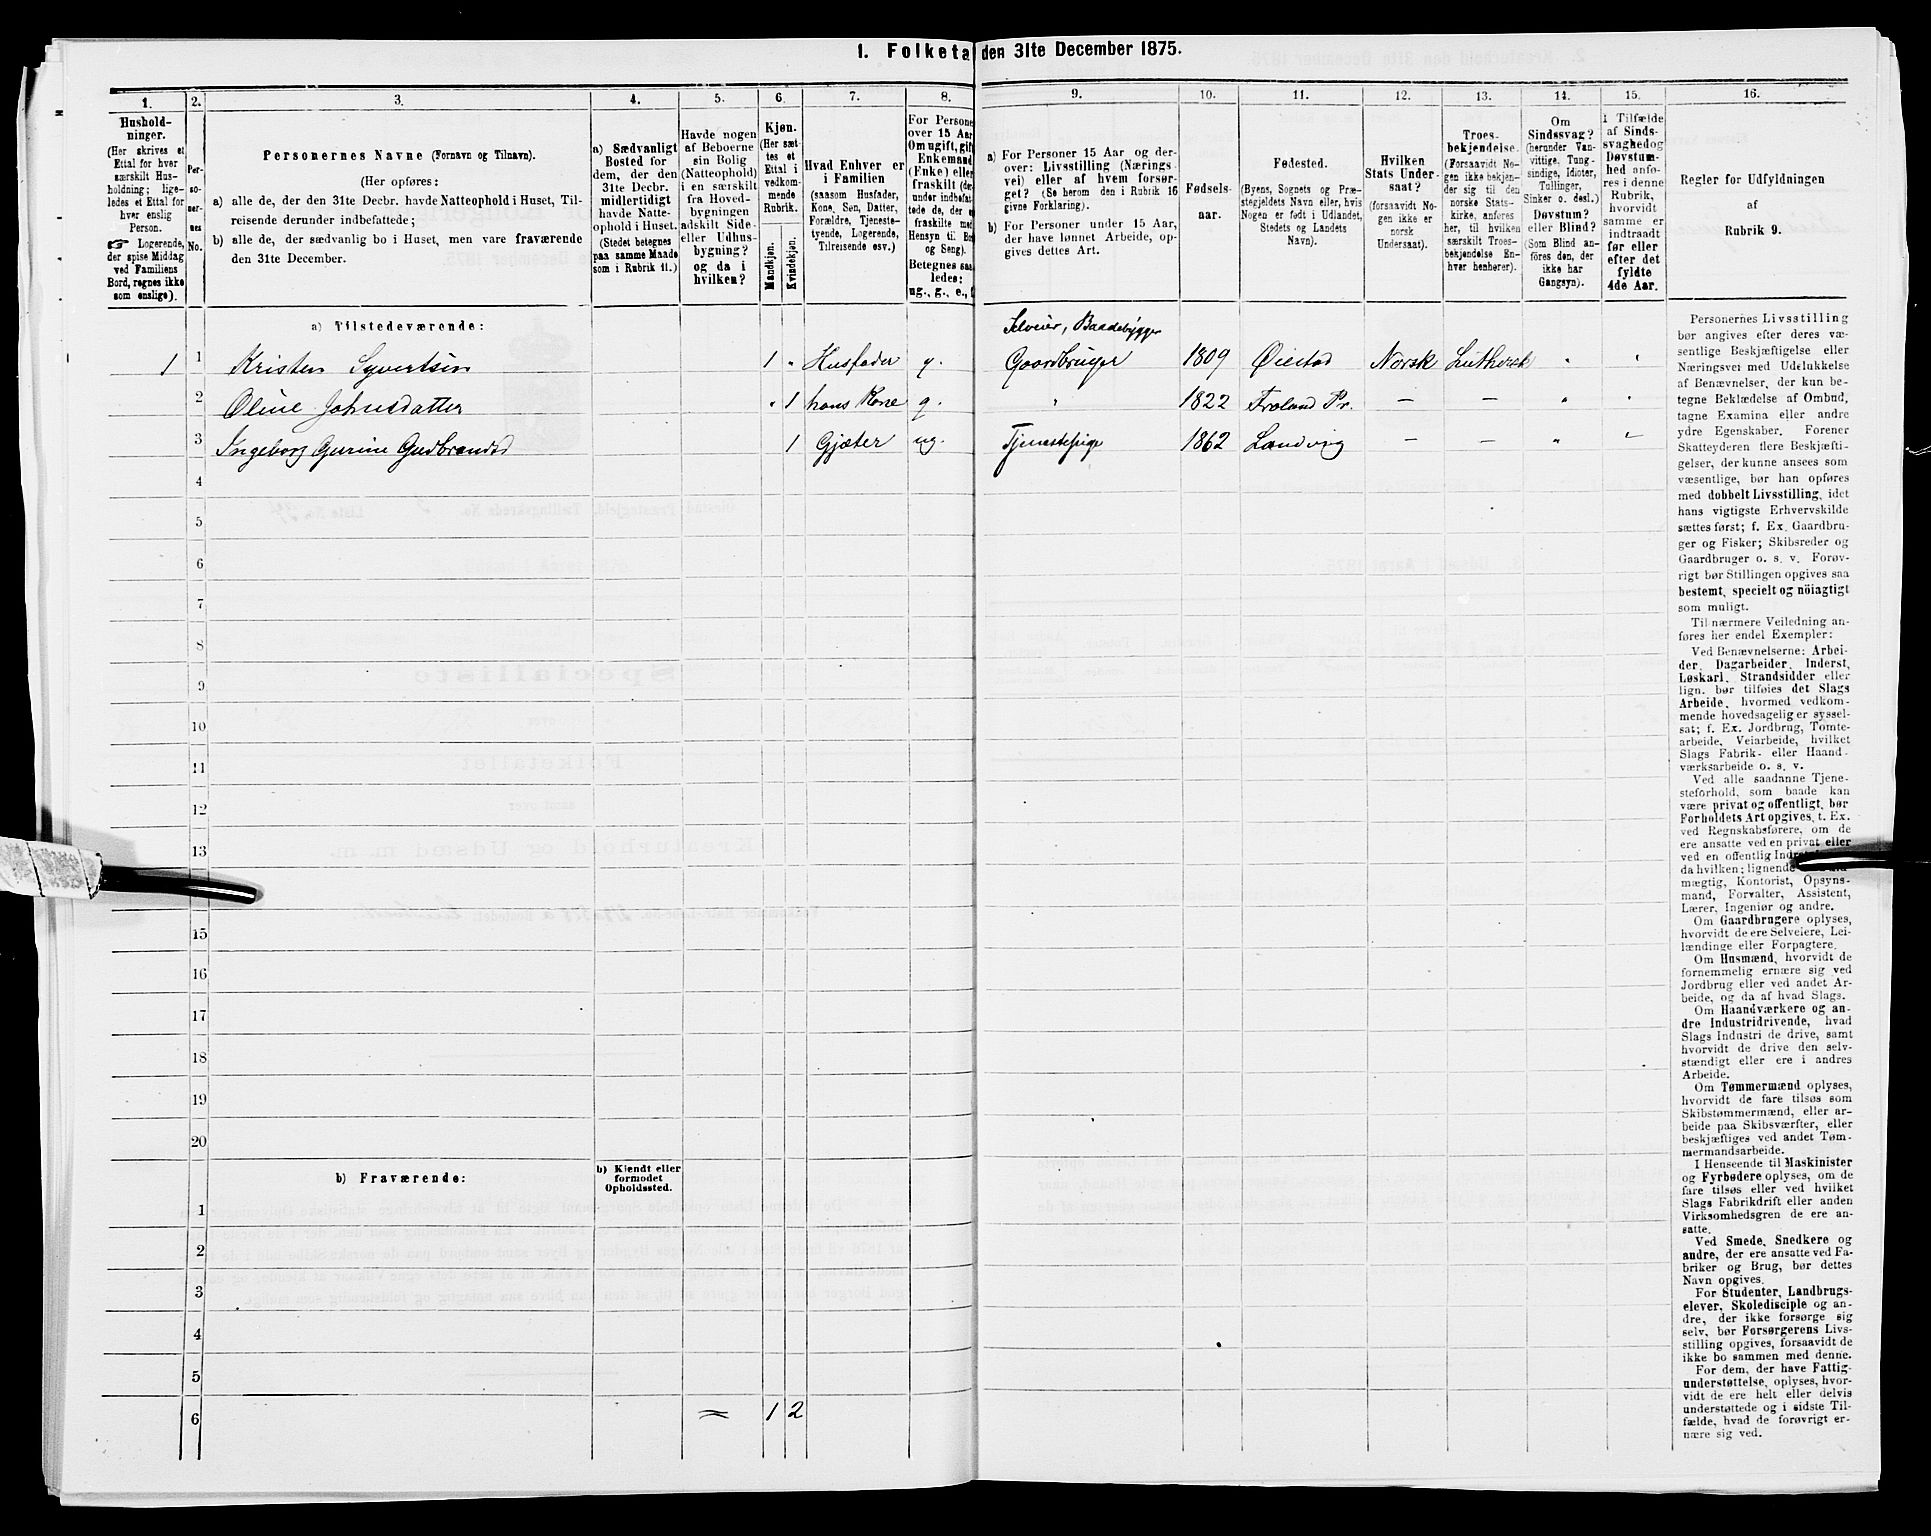 1. Folketal den 31te December 1875.
1. 2. 3. 4. 5. 6. 7. 8. 9. 10. 11. 12. 13. 14. 15. 16.
Hushold-
ninger.
(Her skrives et
Ettal for hver
særskilt Hus-
holdning; lige-
ledes et Ettal for
hver enslig
Person.
☞ Logerende,
der spise Middag
ved Familiens
Bord, regnes ikke
som enslige).
Per-
so-
ner-
nes
No.
Personernes Navne (Fornavn og Tilnavn).
(Her opføres:
a) alle de, der den 31te Decbr. havde Natteophold i Huset, Til-
reisende derunder indbefattede;
b) alle de, der sædvanlig bo i Huset, men vare fraværende
den 31te December.
a) Sædvanligt
Bosted for
dem, der den
31te Decbr.
midlertidigt
havde Natte-
ophold i Huset.
(Stedet betegnes
paa samme Maade
som i Rubrik 11.)
Havde nogen
af Beboerne
sin Bolig
(Natteophold)
i en særskilt
fra Hoved-
bygningen
adskilt Side-
eller Udhus-
bygning?
og da i
hvilken?
Kjøn.
(Her sæt-
tes et
Ettal i
vedkom-
mende
Rubrik.
Mandkjøn.
Kvindekjøn.
Hvad Enhver er
i Familien
(saasom Husfader,
Kone, Søn, Datter,
Forældre, Tjeneste-
tyende, Logerende,
Tilreisende osv.)
For Persone
over 15 Aar
Om ugift, gift
Enkemand
(Enke) eller
fraskilt (de
under indbefat
tede de, der e
fraskilte med
Hensyn til Bo
og Seng).
Betegnes saa
ledes:
ug., g., e., f
a) For Personer 15 Aar og der-
over: Livsstilling (Nærings-
vei) eller af hvem forsør-
get? (Se herom den i Rubrik 16
givne Forklaring).
b) For Personer under 15 Aar,
der have lønnet Arbeide, op-
gives dettes Art.
Fødsels-
aar.
Fødested.
(Byens, Sognets og Præ-
stegjeldets Navn eller, hvis
Nogen er født i Udlandet,
Stedets og Landets
Navn).
Hvilken
Stats Under-
saat?
(forsaavidt No-
gen ikke er
norsk
Undersaat).
Troes-
bekjendelse.
(Forsaavidt No-
gen ikke bekjen-
der sig til den
norske Stats-
kirke, anføres
her, til hvilken
særskilt Troes-
bekjendelse En-
hver henhører).
Om
Sindssvag?
(herunder Van-
vittige, Tung-
sindige, Idioter,
Tullinger,
Sinker o. desl.)
Døvstum?
eller Blind?
(Som Blind an-
føres den, der
ikke har
Gangsyn).
I Tilfælde
af Sinds-
svaghed og
Døvstum-
hed anfø-
res i denne
Rubrik,
hvorvidt
samme er
indtraadt
før eller
efter det
fyldte
4de Aar.
Regler for Udfyldningen
af
Rubrik 9.
a) Tilstedeværende:
Selveier, Baadebygger
1 1 Kristen Syvertsen 1 „ Husfader g. Gaardbruger 1809 Øiestad Norsk Luthersk „ „
2 Oline Johnsdatter „ 1 hans Kone g. „ 1822 Froland Pr. — — „ „
3 Ingeborg Gurine Gudbrandsd 1 Gjæter ug. Tjenestepige 1862 Landvig — — „ „
4
5
6
7
8
9
10
11
12
13
15
16
17
18
19
20
b) Fraværende:
b) Kjendt eller
formodet
Opholdssted.
1
2
3
4
5
6 = 1 2
Personernes Livsstilling
bør angives efter deres væ-
sentlige Beskjæftigelse eller
Næringsvei med Udelukkelse
af Benævnelser, der kun be-
tegne Beklædelse af Ombud,
tagne Examina eller andre
ydre Egenskaber. Forener
Skatteyderen flere Beskjæfti-
gelser, der kunne ansees som
væsentlige, bør han opføres
med dobbelt Livsstilling, idet
hans vigtigste Erhvervskilde
sættes først; f. Ex. Gaardbru-
ger og Fisker; Skibsreder og
Gaardbruger o. s. v. Forøv-
rigt bør Stillingen opgives saa
bestemt, specielt og nöiagtigt
som muligt.
Til nærmere Veiledning an-
føres her endel Exempler:
Ved Benævnelserne: Arbei-
der, Dagarbeider, Inderst,
Løskarl, Strandsidder eller
lign. bør tilføies det Slags
Arbeide, hvormed vedkom-
mende hovedsagelig er syssel-
sat; f. Ex. Jordbrug, Tomte-
arbeide, Veiarbeide, hvilket
Slags Fabrik- eller Haand-
værksarbeide o. s. v.
Ved alle saadanne Tjene-
steforhold, som baade kan
være privat og offentligt, bør
Forholdets Art opgives, t. Ex.
ved Regnskabsførere, om de
ere ansatte ved en privat eller
ved en offentlig
da hvilken; lignende
mægtig, Kontorist, Opsyns-
mand, Forvalter, Assistent,
Lærer, Ingeniør og andre.
Om Gaardbrugere oplyses,
hvorvidt de ere Selveiere, Lei-
lændinge eller Forpagtere.
Om Husmænd, hvorvidt de
fornemmelig ernære sig ved
Jordbrug eller ved andet Ar-
beide, og da af hvad Slags.
Om Haandværkere og an-
dre Industridrivende, hvad
Slags Industri de drive, samt
hvorvidt de drive den selv-
stændigt eller ere i andres
Arbeide.
Om Tømmermænd oplyses,
hvorvidt de fare tilsøs som
Skibstømmermænd, eller ar-
beide paa Skibsværfter, eller
beskjæftiges ved andet Tøm-
mermandsarbeide.
I Henseende til Maskinister
og Fyrbødere oplyses, om de
fare tilsøs eller ved hvilket
Slags Fabrikdrift eller anden
Virksomhedsgren de ere an-
satte.
Ved Smede, Snedkere og
andre, der ere ansatte ved Fa-
briker og Brug, bør dettes
Navn opgives.
For Studenter, Landbrugs-
elever, Skoledisciple og an-
dre, der ikke forsørge sig
selv, bør Forsørgerens Livs-
stilling opgives, forsaavidt de
ikke bo sammen med denne.
For dem, der have Fattig-
understøttelse, oplyses, hvor-
vidt de ere helt eller delvis
understøttede og i sidste Til-
fælde, hvad de forøvrigt er-
nære sig ved.